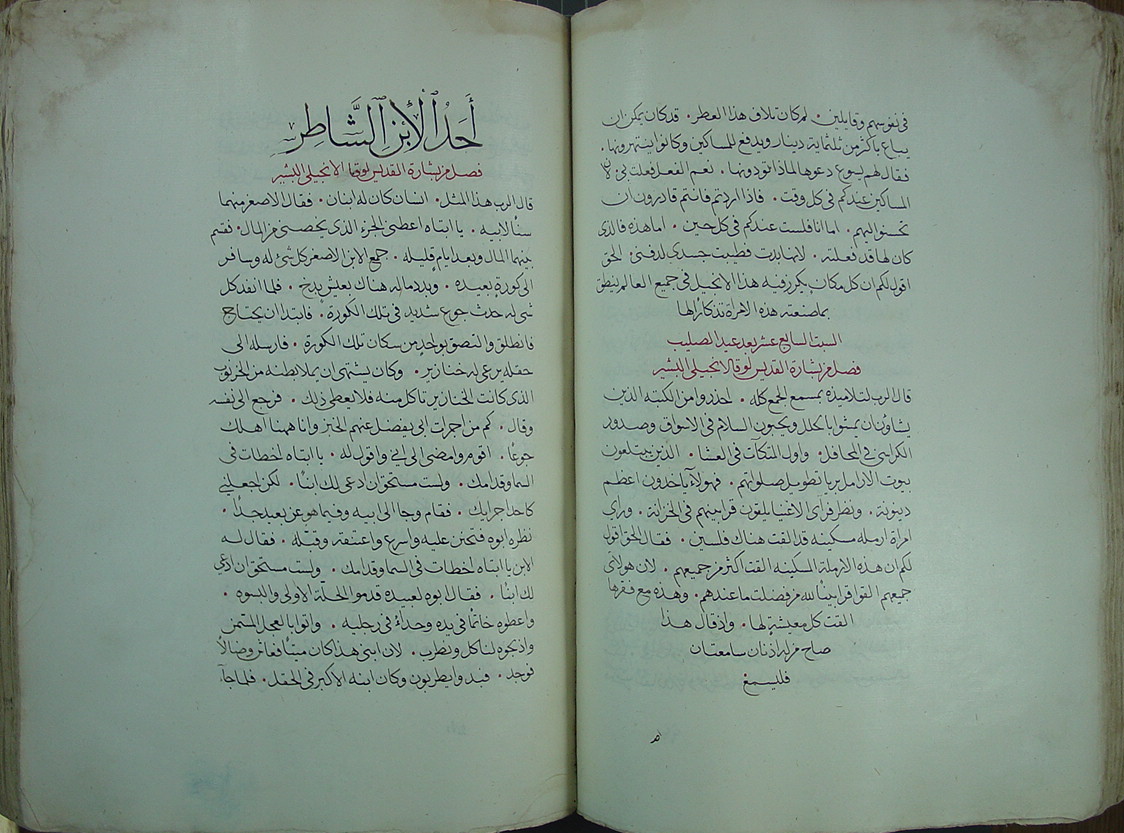 في نفوسهم وقايلين. لم كان تلاف هذا العطر. قد كان يمكن ان
يباع باكثر من ثلثماية دينار ويدفع للمساكين وكانوا ينتهرونها.
فقال لهم يسوع دعوها لماذا تؤذونها. نعم الفعل فعلت بي لان
المساكين عندكم في كل وقت. فاذا اردتم فانتم قادرون ان
تحسنوا اليهم. اما انا فلست عندكم في كل حين. اما هذه فالذي
كان لها قد فعلته. لانها بدت فطيبت جسدي لدفني. الحق
اقول لكم ان كل مكان يكرز فيه هذا الانجيل في جميع العالم ينطق
بما صنعته هذه الامراة تذكارا لها
السبت السابع عشر بعد عيد الصليب
فصل من بشارة القديس لوقا الانجيلي البشير
قال الرب لتلاميذه بمسمع الجمع كله. احذروا من الكتبه الذين
يشاؤن ان يمشوا بالحلل ويحبون السلام في الاسواق وصدور
الكراسي في المحافل. واول المتكات في العشا. الذين يبتلعون
بيوت الارامل برياء تطويل صلواتهم. فهولاء ياخذون اعظم
دينونة. ونظر فراى الاغنيا يلقون قرابينهم في الخزانة. وراي
امراة ارمله مسكينه قد القت هناك فلسين. فقال الحق اقول
لكم ان هذه الارملة المسكينه القت اكثر من جميعهم. لان هولاي
جميعهم القوا قرابينًا لله من فضلت ما عندهم. وهذه مع فقرها
القت كل معيشةٍ لها. واذ قال هذا
صاح من له اذنان سامعتان
فليسمع
أَحَدُ ٱلْإِبْنِ ٱلشَّاطِرِ
فصل من بشارة القديس لوقا الانجيلي البشير
قال الرب هذا المثل. انسان كان له ابنان. فقال الاصغر منهما
سنًا لابيه. يا ابتاه اعطني الجزء الذي يخصني من المال. فقسم
بينهما المال وبعد ايام قليله. جمع الابن الاصغر كل شئ له وسافر
الى كورةٍ بعيده. وبدد ماله هناك بعيش بذخ. فلما انفد كل
شي له حدث جوع شديد في تلك الكورة. فابتدا ان يحتاج
فانطلق والتصق بواحدٍ من سكان تلك الكورة. فارسله الى
حقله يرعى له خنازير. وكان يشتهي ان يملا بطنه من الخرنوب
الذي كانت الخنازير تاكل منه فلا يعطى ذلك. فرجع الى نفسه
وقال. كم من اجرات ابي يفضل عنهم الخبز وانا ههنا اهلك
جوعًا. اقوم وامضي الى ابي واقول له. يا ابتاه اخطات في
السما وقدامك. ولست مستحق ان ادعى لك ابنًا. لكن اجعلني
كاحد اجرايك. فقام وجا الى ابيه وفيما هو عن بعيد جدًا.
نظره ابوه فتحنن عليه واسرع واعتنقه وقبله. فقال له
الابن يا ابتاه اخطات في السما وقدامك. ولست مستحق ان ادعي
لك ابنًا. فقال ابوه لعبيده قدموا الحلّة الاولى والبسوه.
واعطوه خاتمًا في يده وحداءً في رجليه. واتوا بالعجل المثمن
واذبحوه لناكل ونطرب. لان ابني هذا كان ميتًا فعاش وضالًا
فوجد. فبدوا يطربون وكان ابنه الاكبر في الحقل. فلما جآء